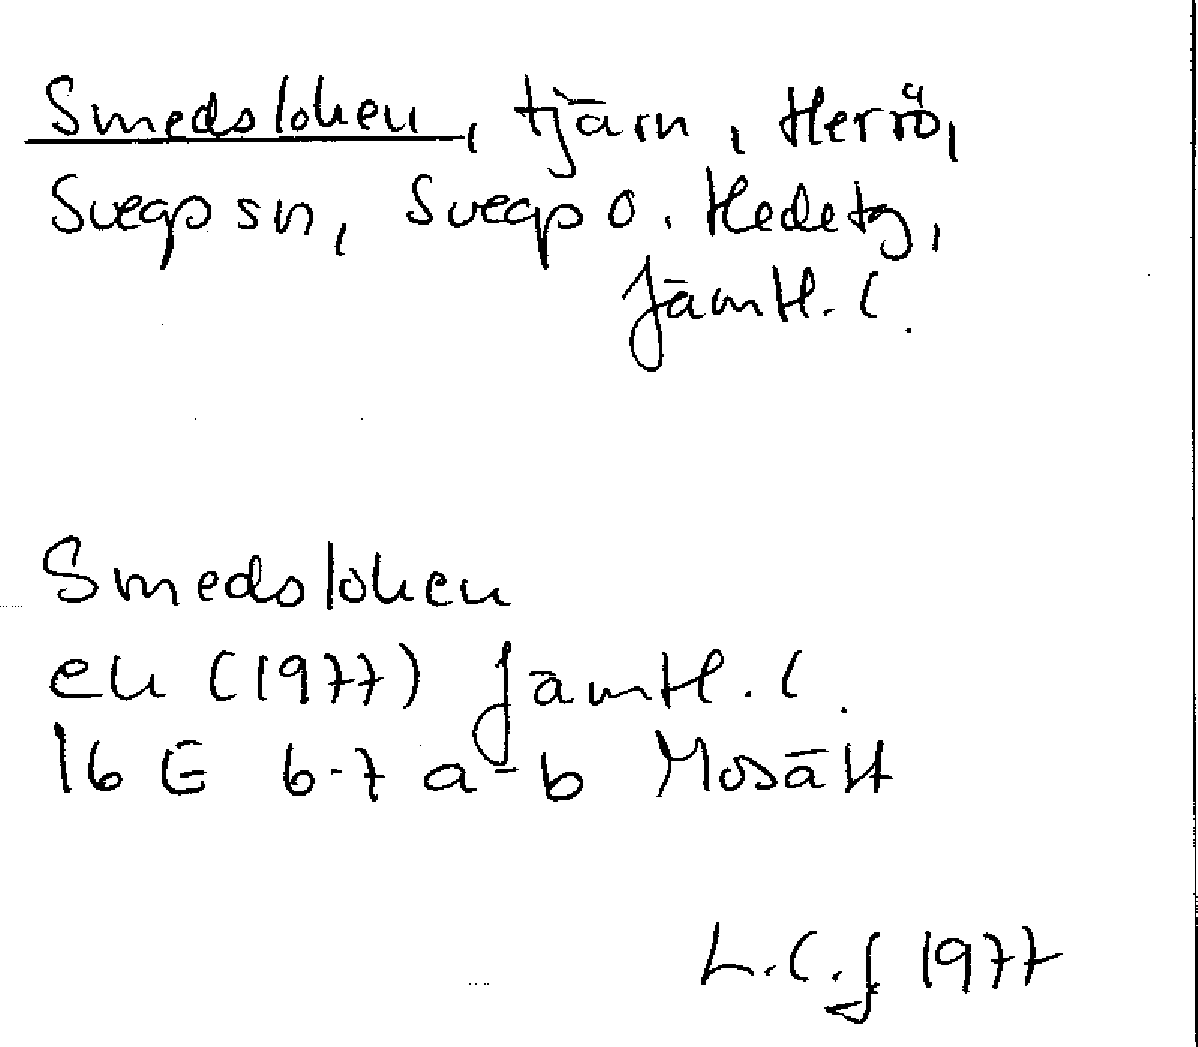 Smedsloken, tjärn, Herrö,
Svegs sn, Svegs o. Hede tg,
Jämtl. l.
Smedsloken
ek (1977) Jämtl. l.
16 E 6-7 a-b Mosätt
L.C.J 1977